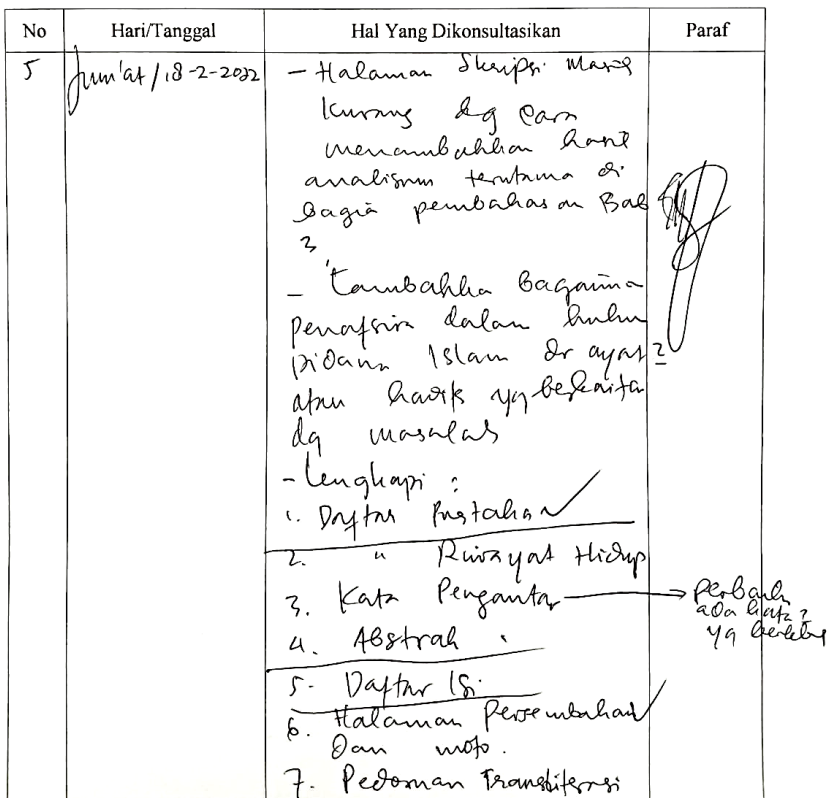 No Hari/Tanggal Hal Yang Dikonsultasikan Paraf
5 Jum'at / 18-2-2022 - Halaman Skripsi Masih
kurang dg cara
menambahkan hasil
analisnm terutama di
bagia pembahasan Bab
3
- tambahka Bagaima
Penafsira dalam huku
pidana Islam dr ayat2
atau hadis yg berkaita
dg masalah
- lengkapi :
1. Daftar Pustaka ✓
2. " Riwayat Hidup
3. Kata Pengantar → Perbaiki
ada kata2
yg
4. Abstrak
5. Daftar Isi
6. Halaman Persembahan ✓
Dan moto.
7. Pedoman Transliterasi